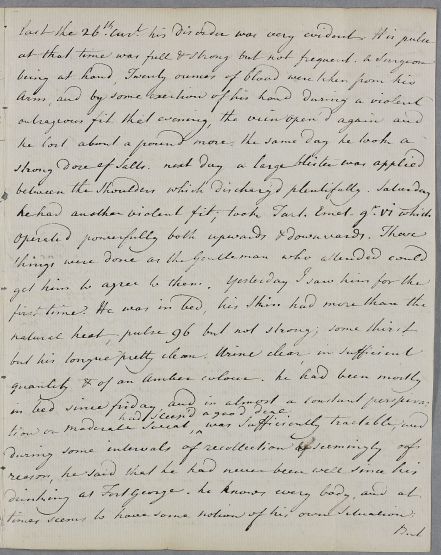 last the 26th Curt. his disorder was very evident. His pulse
at that time was full & strong but not frequent. A Surgeon
being at hand, Twenty ounces of blood were taken from his
Arm, and by some exertion of his hand during a violent
outrageous fit that evening, the vein open'd again and
he lost about a pound more. the same day he took a
strong Dose of Salts. next day a large blister was applied
between the Shoulders which discharg'd plentifully. Saturday
he had another violent fit; took Tart. Emet. gr. vi which
operated powerfully both upwards & downwards. These
things were done as the Gentleman who attended could
get him to agree to them. Yesterday I saw him for the
first time. He was in bed, his Skin had more than the
natural heat, pulse 96 but not strong; some thirst
but his tongue pretty clean. Urine clear in sufficient
quantity & of an Amber colour. he had been mostly
in bed since friday and in almost a constant perspira-
had sleep'd a good deal
tion or moderate Sweat, was Sufficiently tractable, and
during some intervals of recollection & seemingly of
reason, he said that he had never been well since his
drinking at Fort George. he knows every body, and at
times seems to have some notion of his own Situation
But